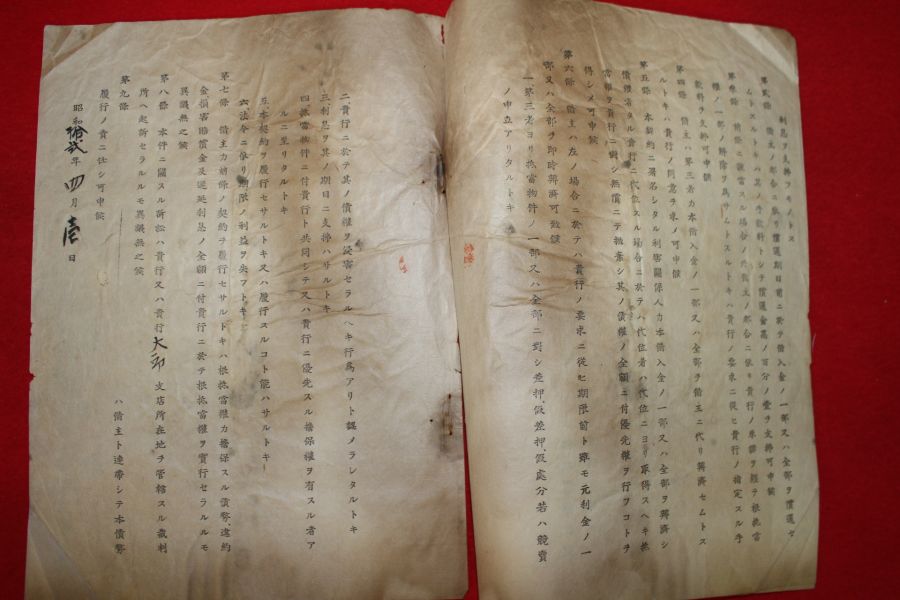 利息ヲ支拂フモノトス
第貳條 借主ノ都合ニ依リ償還期日前ニ於テ借入金ノ一部又ハ全部ヲ償還セ
ムトスルトキハ其ノ手數料トシテ償還金高ノ百分ノ壹ヲ支拂可申候
第參條 前條ニ該當スル場合ノ外借主ノ都合ニ依リ貴行ノ承諾ヲ經テ根抵當
權ノ一部ノ解除ヲ爲サムトスルトキハ貴行ノ要求ニ從ヒ貴行ノ指定スル手
數料ヲ支拂可申候
第四條 借主ハ第三者カ本借入金ノ一部又ハ全部ヲ借主ニ代リ辨濟セムトス
ルトキハ貴行ノ同意ヲ求メ可申候
第五條 本契約ニ署名シタル利害關係人カ本借入金ノ一部又ハ全部ヲ辨濟シ
債權者タル貴行ニ代位スル場合ニ於テハ代位者ハ代位ニヨリ取得スヘキ抵
當權ヲ貴行ニ對シ無償ニテ抛棄シ其ノ債權ノ全額ニ付優先權ヲ行フコトヲ
得シメ可申候
第六條 借主ハ左ノ場合ニ於テハ貴行ノ要求ニ從ヒ期限前ト雖モ元利金ノ一
部又ハ全部ヲ即時辨濟可致候
一、第三者ヨリ抵當物件ノ一部又ハ全部ニ對シ差押、假差押假處分若ハ競賣
ノ申立アリタルトキ
二、貴行ニ於テ其ノ債權ヲ侵害セラルヘキ行爲アリト認メラレタルトキ
三、利息ヲ其ノ期日ニ支拂ハサルトキ
四、抵當物件ニ付貴行ト共同シテ又ハ貴行ニ優先スル擔保權ヲ有スル者ア
ルニ至リタルトキ
五、本契約ヲ履行セサルトキ又ハ履行スルコト能ハサルトキ
六、法令ニ依リ期限ノ利益ヲ失フトキ
第七條 借主カ前條ノ契約ヲ履行セサルトキハ根抵當權カ擔保スル債務、違約
金損害賠償金及遲延利息ノ全額ニ付貴行ニ於テ根抵當權ヲ實行セラルルモ
異議無之候
第八條 本件ニ關スル訴訟ハ貴行又ハ貴行 支店所在地ヲ管轄スル裁判
所ヘ起訴セラルルモ異議無之候
第九條 ハ借主ト連帶シテ本債務
履行ノ責ニ任シ可申候
昭和拾貳年四月壱日